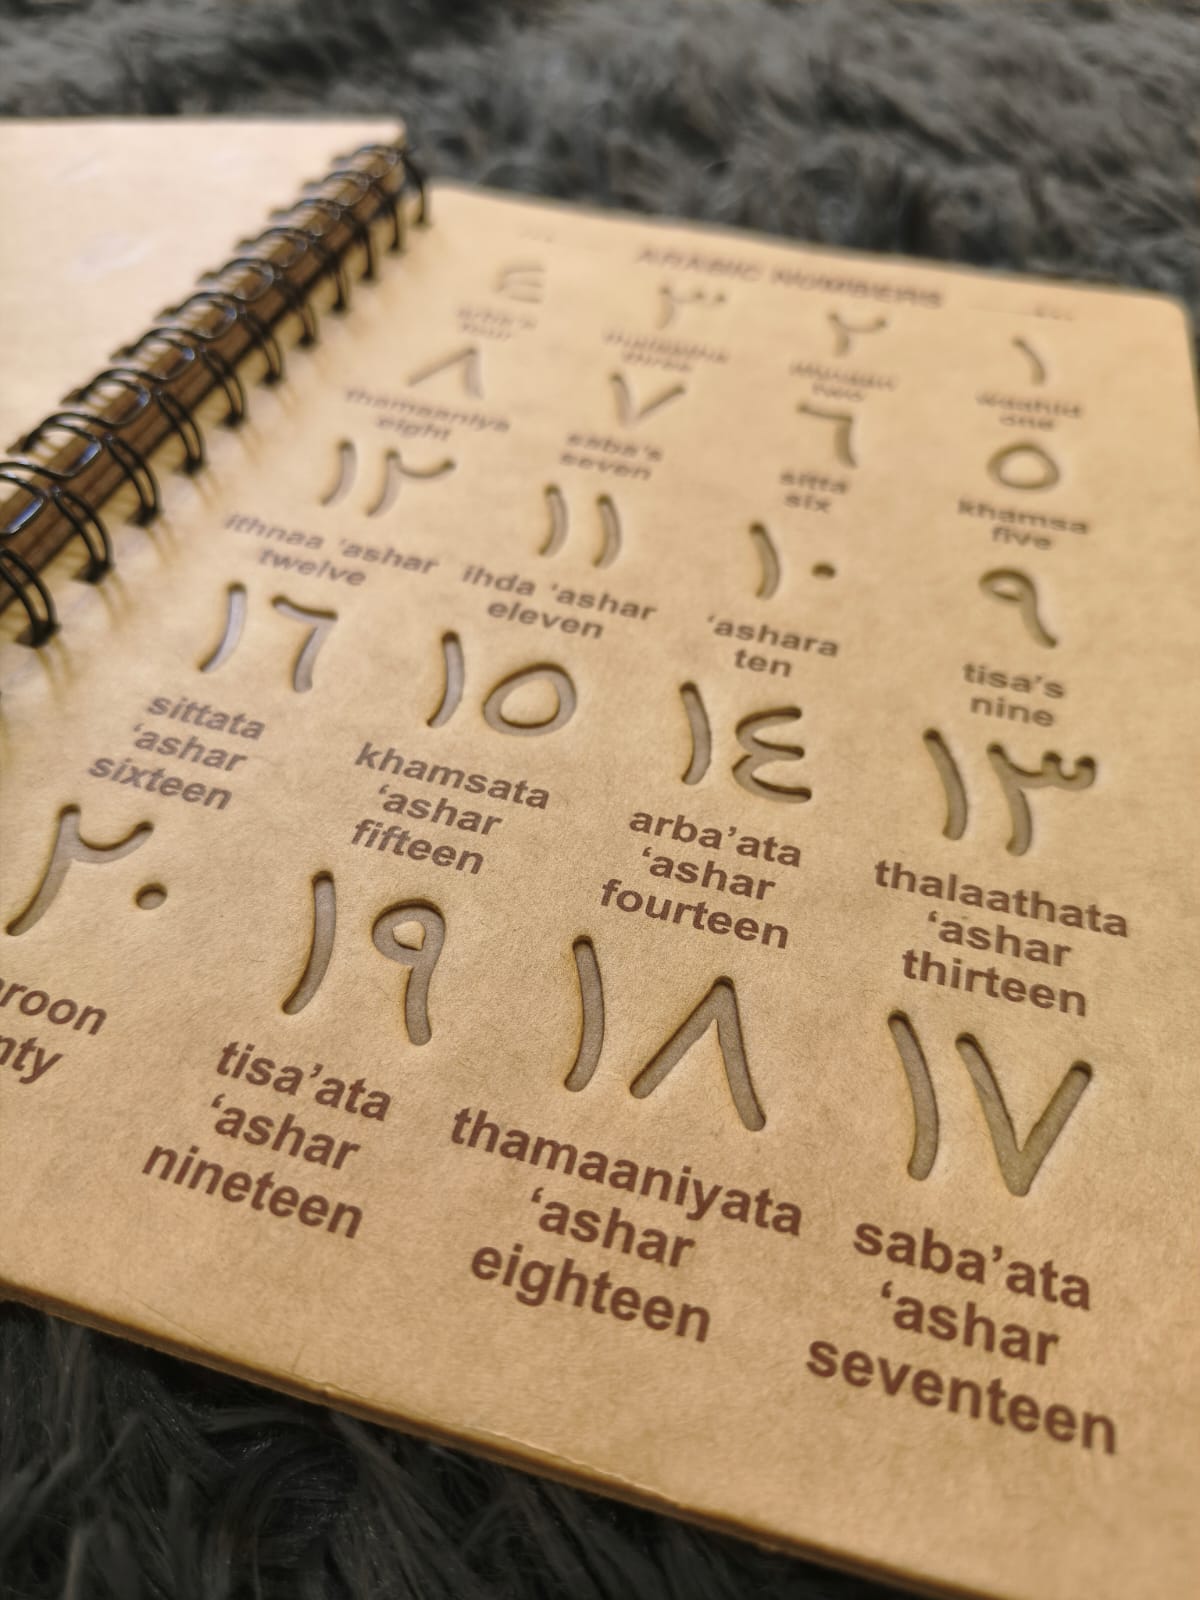 ARABIC NUMBERS
١
waahid
one
٢
two
٣
thalaatha
three
٤
four
٥
khamsa
five
٦
sitta
six
٧
saba's
seven
٨
thamaaniya
eight
٩
tisa's
nine
١٠
'ashara
ten
١١
ihda 'ashar
eleven
١٢
ithnaa 'ashar
twelve
١٣
thalaathata
'ashar
thirteen
١٤
arba'ata
'ashar
fourteen
١٥
khamsata
'ashar
fifteen
١٦
sittata
'ashar
sixteen
١٧
saba'ata
'ashar
seventeen
١٨
thamaaniyata
'ashar
eighteen
١٩
tisa'ata
'ashar
nineteen
٢٠
roon
nty